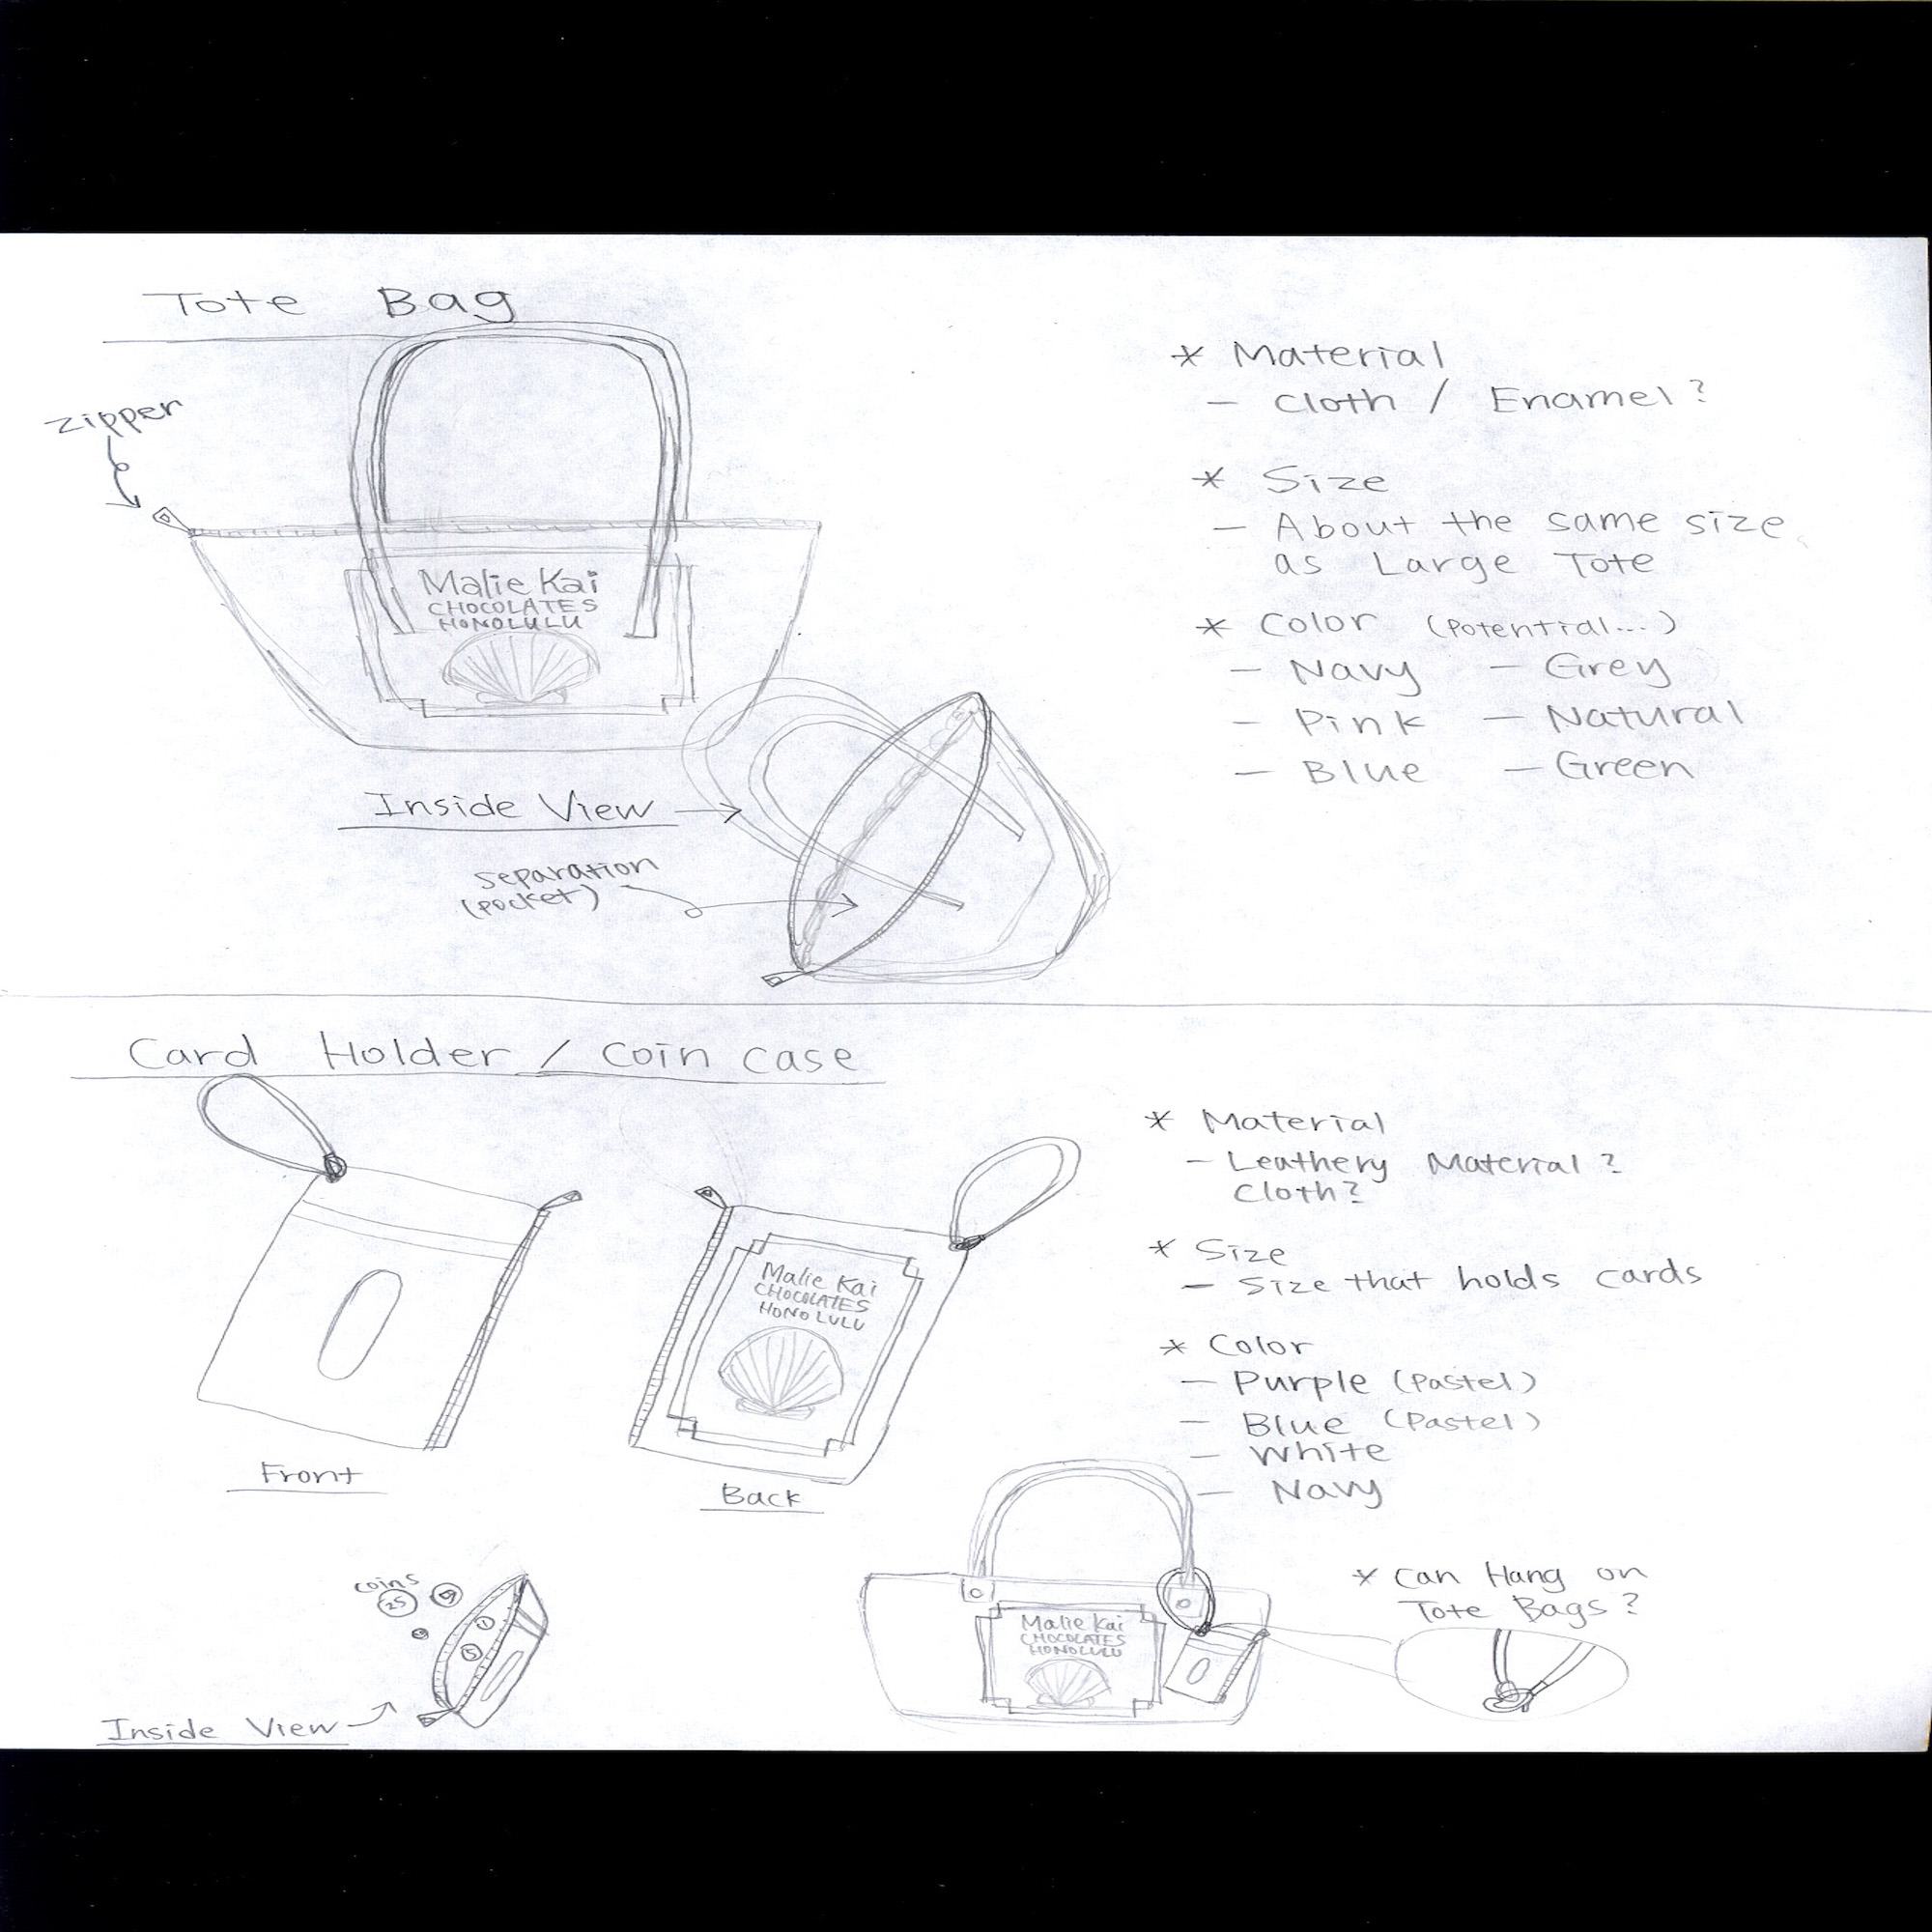 Tote Bag
Zipper
Malie Kai
CHOCOLATES
HONOLULU
* Material
- Cloth / Enamel?
* Size
- About the same size
as Large Tote
* Color (Potential...)
- Navy - Grey
- Pink - Natural
- Blue - Green
Inside View
separation
(pocket)
Card Holder / Coin case
Malie Kai
CHOCOLATES
HONOLULU
Front
Back
* Material
- Leathery Material?
Cloth?
* Size
- Size that holds cards
* Color
- Purple (Pastel)
- Blue (Pastel)
- White
- Navy
coins
25
1
5
Inside View
Malie Kai
CHOCOLATES
HONOLULU
* Can Hang on
Tote Bags?